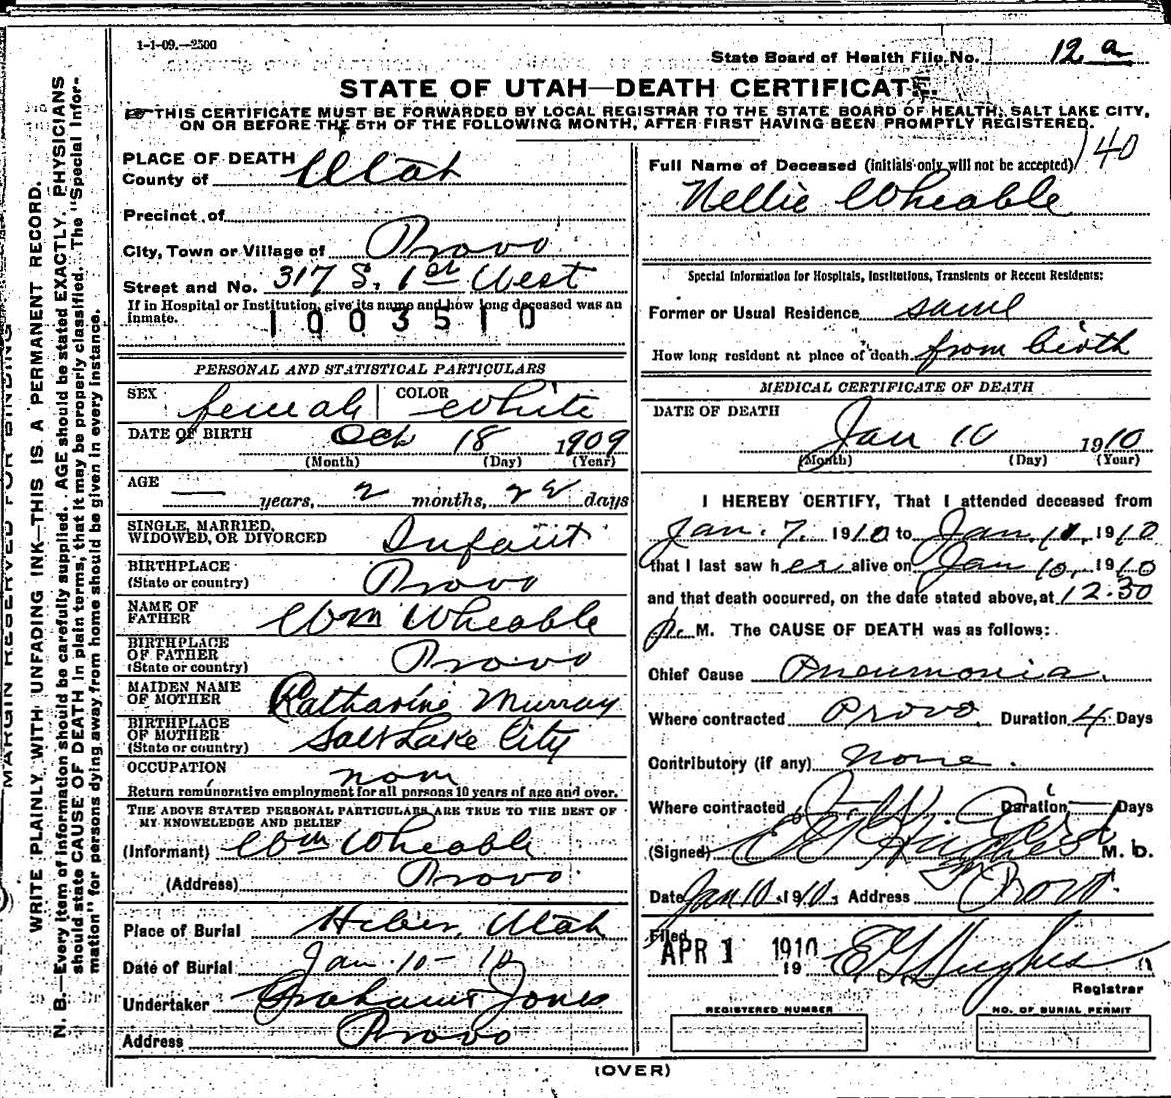 1-1-09.—2500
State Board of Health File No. 12 a
STATE OF UTAH—DEATH CERTIFICATE.
THIS CERTIFICATE MUST BE FORWARDED BY LOCAL REGISTRAR TO THE STATE BOARD OF HEALTH, SALT LAKE CITY,
ON OR BEFORE THE 5TH OF THE FOLLOWING MONTH, AFTER FIRST HAVING BEEN PROMPTLY REGISTERED.
140
PLACE OF DEATH
County of Utah
Precinct of
City, Town or Village of Provo
Street and No. 317 S. 1st West
If in Hospital or Institution, give its name and how long deceased was an
inmate.
1003510
PERSONAL AND STATISTICAL PARTICULARS
SEX female COLOR White
DATE OF BIRTH Oct 18 1909
(Month) (Day) (Year)
AGE — years, 2 months, 22 days
SINGLE, MARRIED,
WIDOWED, OR DIVORCED Infant
BIRTHPLACE
(State or country) Provo
NAME OF
FATHER Wm Wheable
BIRTHPLACE
OF FATHER
(State or country) Provo
MAIDEN NAME
OF MOTHER Katharine Murray
BIRTHPLACE
OF MOTHER
(State or country) Salt Lake City
OCCUPATION
Return remunerative employment for all persons 10 years of age and over.
THE ABOVE STATED PERSONAL PARTICULARS ARE TRUE TO THE BEST OF
MY KNOWLEDGE AND BELIEF
(Informant) Wm Wheable
(Address) Provo.
Place of Burial Heber, Utah
Date of Burial Jan. 10 - 10
Undertaker Jones
Address Provo
Full Name of Deceased (initials only will not be accepted)
Nellie Wheable
Special Information for Hospitals, Institutions, Transients or Recent Residents:
Former or Usual Residence same
How long resident at place of death from birth
MEDICAL CERTIFICATE OF DEATH
DATE OF DEATH
Jan 10 1910
(Month) (Day) (Year)
I HEREBY CERTIFY, That I attended deceased from
Jan. 7. 1910 to Jan. 1910
that I last saw her alive on Jan 10, 1910
and that death occurred, on the date stated above, at 12.30
p. M. The CAUSE OF DEATH was as follows:
Chief Cause Pneumonia.
Where contracted Provo. Duration 4 Days
Contributory (if any) none.
Where contracted Duration — Days
(Signed) M. D.
Date Jan 10 1910. Address Provo.
Filed
APR 1 1910
19
E G Hughes
Registrar
REGISTERED NUMBER
NO. OF BURIAL PERMIT
(OVER)
MARGIN RESERVED FOR BINDING
WRITE PLAINLY, WITH UNFADING INK—THIS IS A PERMANENT RECORD.
N. B.—Every item of information should be carefully supplied. AGE should be stated EXACTLY. PHYSICIANS
should state CAUSE OF DEATH in plain terms, that it may be properly classified. The "Special Infor-
mation" for persons dying away from home should be given in every instance.